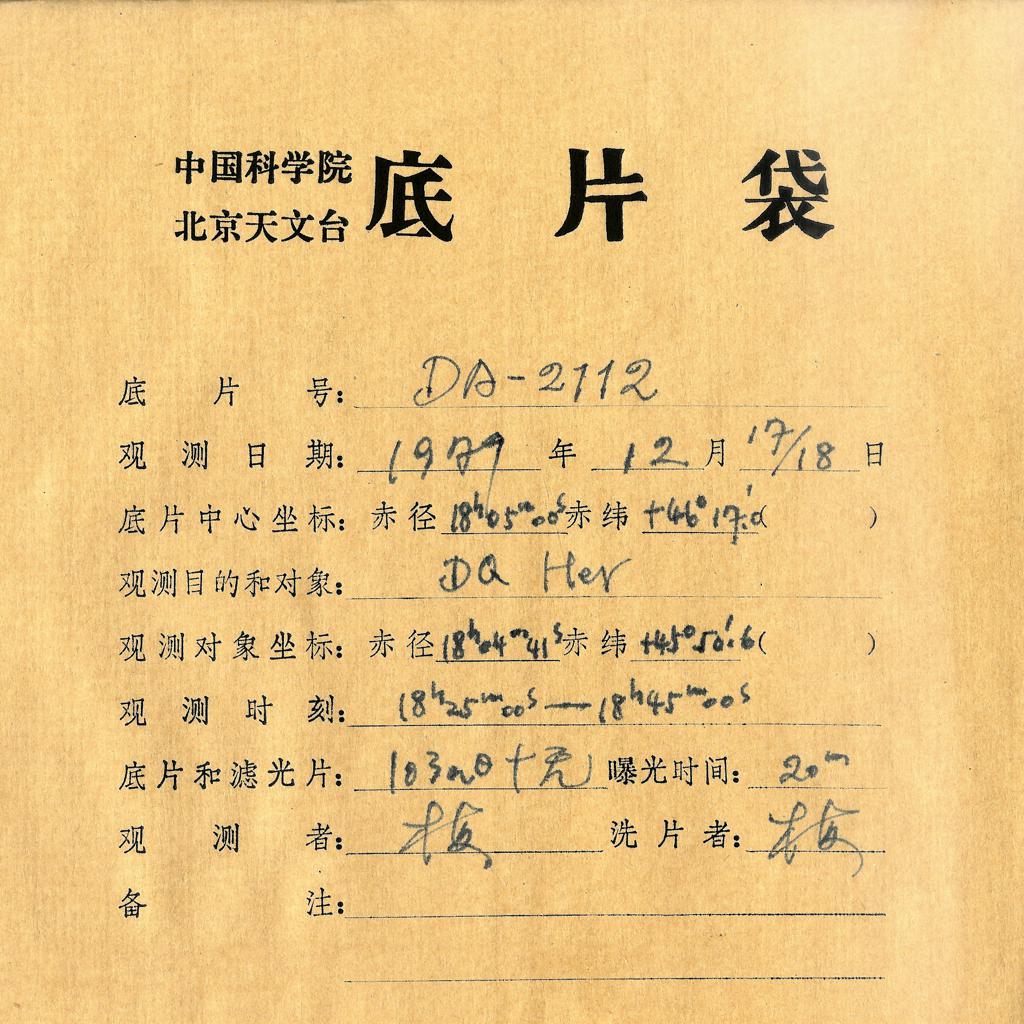 中国科学院
北京天文台
底片袋
底片号：DA-2112
观测日期：1979年12月17/18日
底片中心坐标：赤径18ʰ05ᵐ00ˢ赤纬+46°17′.0( )
观测目的和对象：DQ Her
观测对象坐标：赤径18ʰ04ᵐ41ˢ赤纬+45°50′.6( )
观测时刻：18ʰ25ᵐ00ˢ—18ʰ45ᵐ00ˢ
底片和滤光片：103aO+无 曝光时间：20ᵐ
观测者：梅 洗片者：梅
备注：